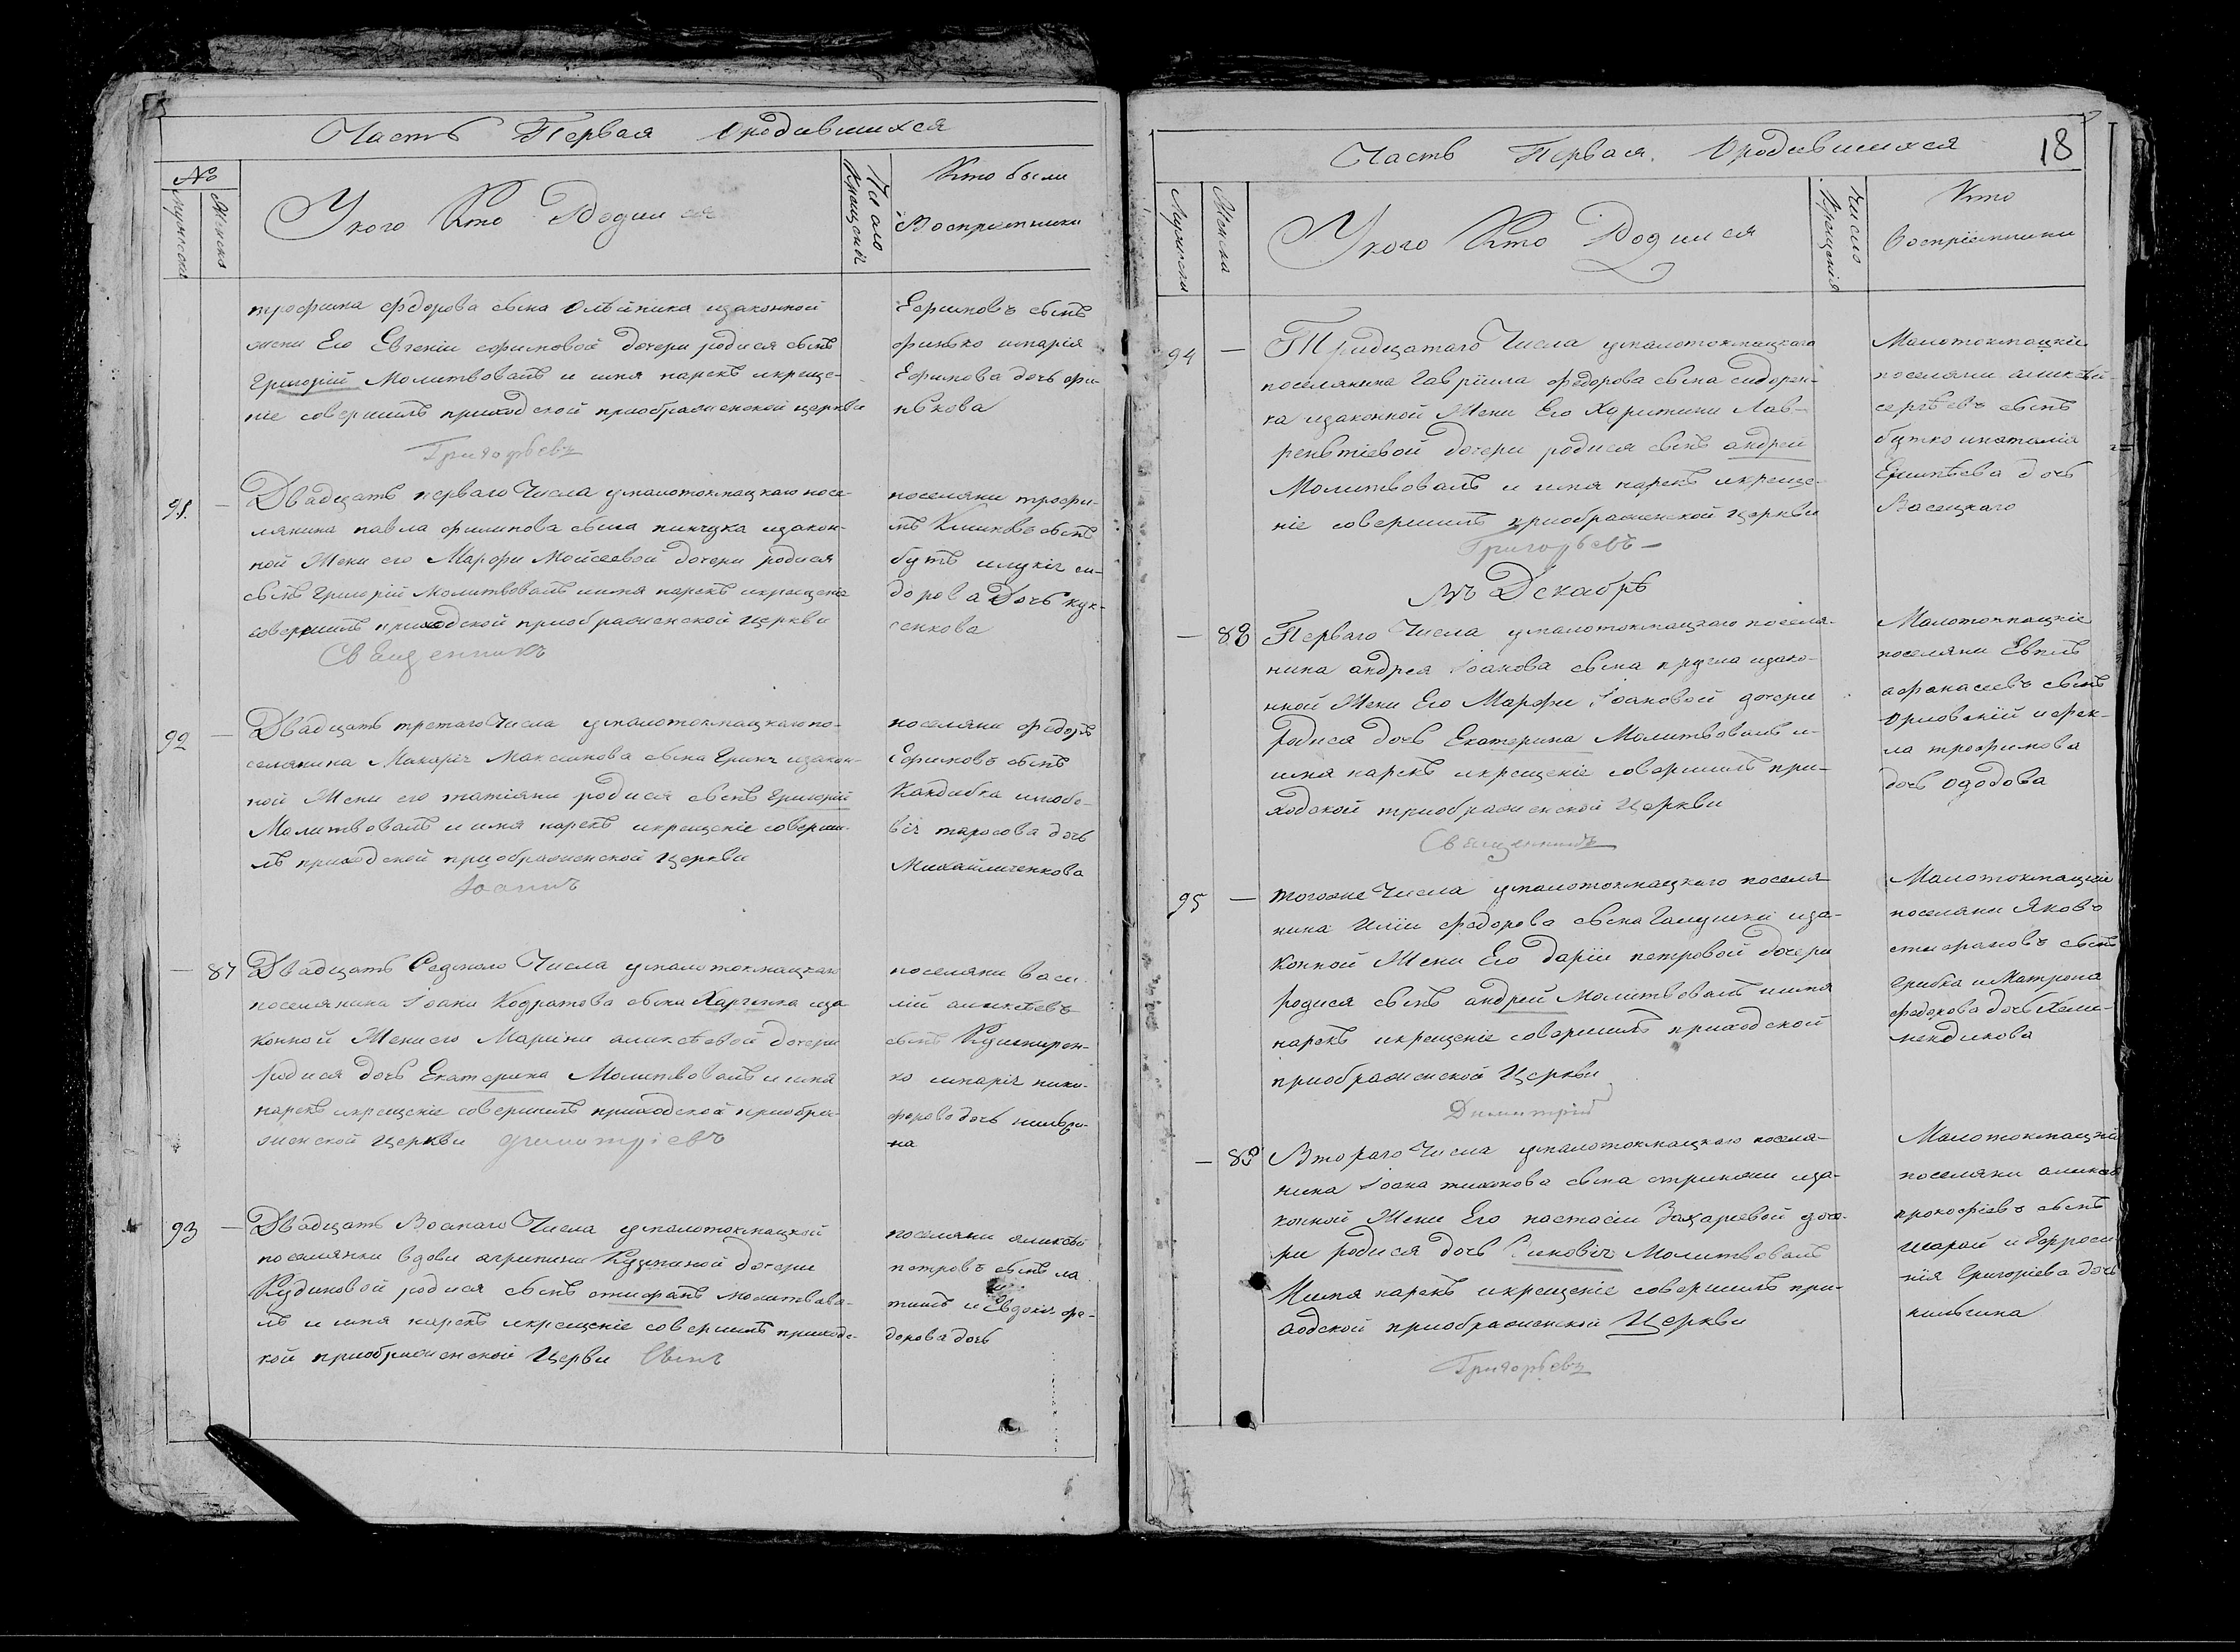 Часть Первая Ородившихся
№
Мужеска
Женска
Укого Кто Родился
Число Крещенія
Кто были
Воспріемники
трофима федорова сына Олейника изаконной
жени Его Евгеніи софимовой дочери родися сынъ
Григорій Молитвовалъ и имя нарекъ икреще-
ніе совершилъ приходской приображенской церкви
Григорьевъ
Ефимовъ сынъ
финько имарія
Ефимова дочь фи-
нькова
91.
Двадцать перваго Числа умалотокмацкаго посе-
лянина павла филипова сына пинчука изакон-
ной Жени его Марфи Мойсеевой дочери родися
сынъ Григорій молитвовалъ иимя нарекъ икрещеніе
совершилъ приходской приображенской церкви
Священникъ
поселяни трофи-
мъ Климовъ сынъ
бутъ илукія си-
дорова Дочь кук-
сенкова
92
Двадцать третаго Числа умалотокмацкаго по-
селянина Макарія Максимова сына Грини изакон-
ной Жени его татіяни родися сынъ Григорій
Молитвовалъ и имя нарекъ икрещеніе соверши-
лъ приходской приображенской церкви
Іоаннъ
поселяни федоръ
Ефимовъ сынъ
Кандибка илюбо-
вія тарасова дочь
Михайличенкова
87
Двадцать Седмого Числа умалотокмацкаго
поселянина Іоана Кодратова сына Харченка иза
конной Жени его Марини алексѣевой дочери
родися дочь Екатерина Молитвовалъ и имя
нарекъ икрещеніе совершилъ приходской приобра-
женской церкви Димитріевъ
поселяни васи-
лій алексѣевъ
сынъ Кушнирен-
ко имарія ники-
форова дочь
на
93
Двадцать Восмаго Числа умалотокмацкой
поселянки вдови агрипини Кузминой дочери
Кудиновой родися сынъ стифанъ молитвова-
лъ и имя нарекъ икрещеніе совершилъ приходс-
кой приображенской Церви
поселяни аликсѣй
петровъ сынъ ла
тишъ и Евдокія фе-
дорова дочь
Часть Первая Ородившихся
18
Мужеска
Женска
Укого Кто Родился
Число Крещенія
Кто
воспріемники
94
Тридцатаго Числа умалотокмацкаго
поселянина Гавріила федорова сына сидорен-
ка изаконной Жени Его Харитини Лав-
рентіевой дочери родися сынъ андрей
Молитвовалъ и имя нарекъ икреще-
ніе совершилъ приображенской церкви
Григорьевъ
Малотокмацкіе
поселяни аликсѣй
сергѣевъ сынъ
бутко инаталія
дочь
Васецкаго
Въ Декабрѣ
88
Перваго Числа умалотокмацкаго поселя-
нина андрея Іоанова сына пругла изако-
нной Жени Его Марфи Іоановой дочери
Родися дочь Екатерина Молитвовалъ и-
имя нарекъ икрещеніе совершилъ при-
ходской приображенской Церкви
Священникъ
Малотокмацкіе
поселяни Евплъ
афанасиевъ сынъ
Орловскій ифек-
ла трофимова
дочь ододова
95
тогоже Числа умалотокмацкаго поселя
нина Иліи федорова сына Галушки иза-
Конной Жени Его дарїи петровой дочери
родися сынъ андрей Молитвовалъ иимя
нарекъ икрещеніе совершилъ приходской
приображенской Церкви
Димитрій
Малотокмацкіе
поселяни Яковъ
стифановъ сынъ
Грибка и Матрона
федорова дочь
89
Втораго Числа умалотокмацкаго поселя-
нина Іоана тихонова сына стрижаки иза-
конной Жени Его настасіи Захарьевой доче-
ри родися дочь Зиновія Молитвовалъ
Иимя нарекъ икрещеніе совершилъ при-
ходской приображенской Церкви
Григорьевъ
Малотокмацкіе
поселяни аликсѣй
прокофіевъ сынъ
шарай и Ефроси-
нія Григоріева дочь